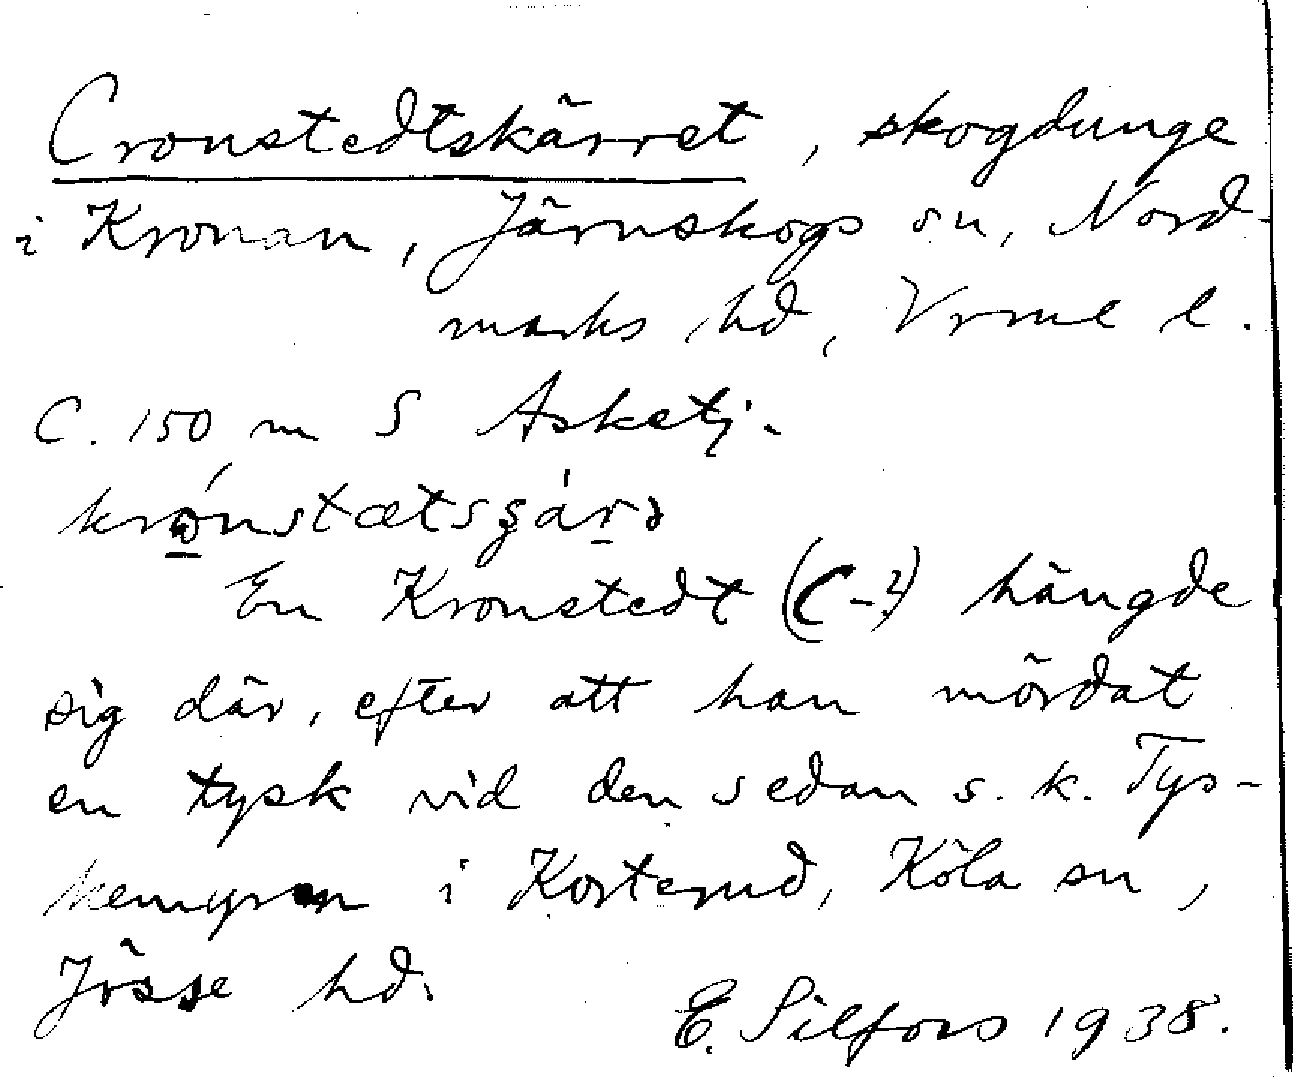 Cronstedtskärret, skogdunge
i Kronan, Järnskogs sn, Nord-
marks hd, Vrml l.
C. 150 m S Asketj.
krónstætsʂár
En Kronstedt (C-?) hängde
sig där, efter att han mördat
en tysk vid den sedan s. k. Tys-
kemyren i Korterud, Köla sn,
Jösse hd.
E. Silfors 1938.